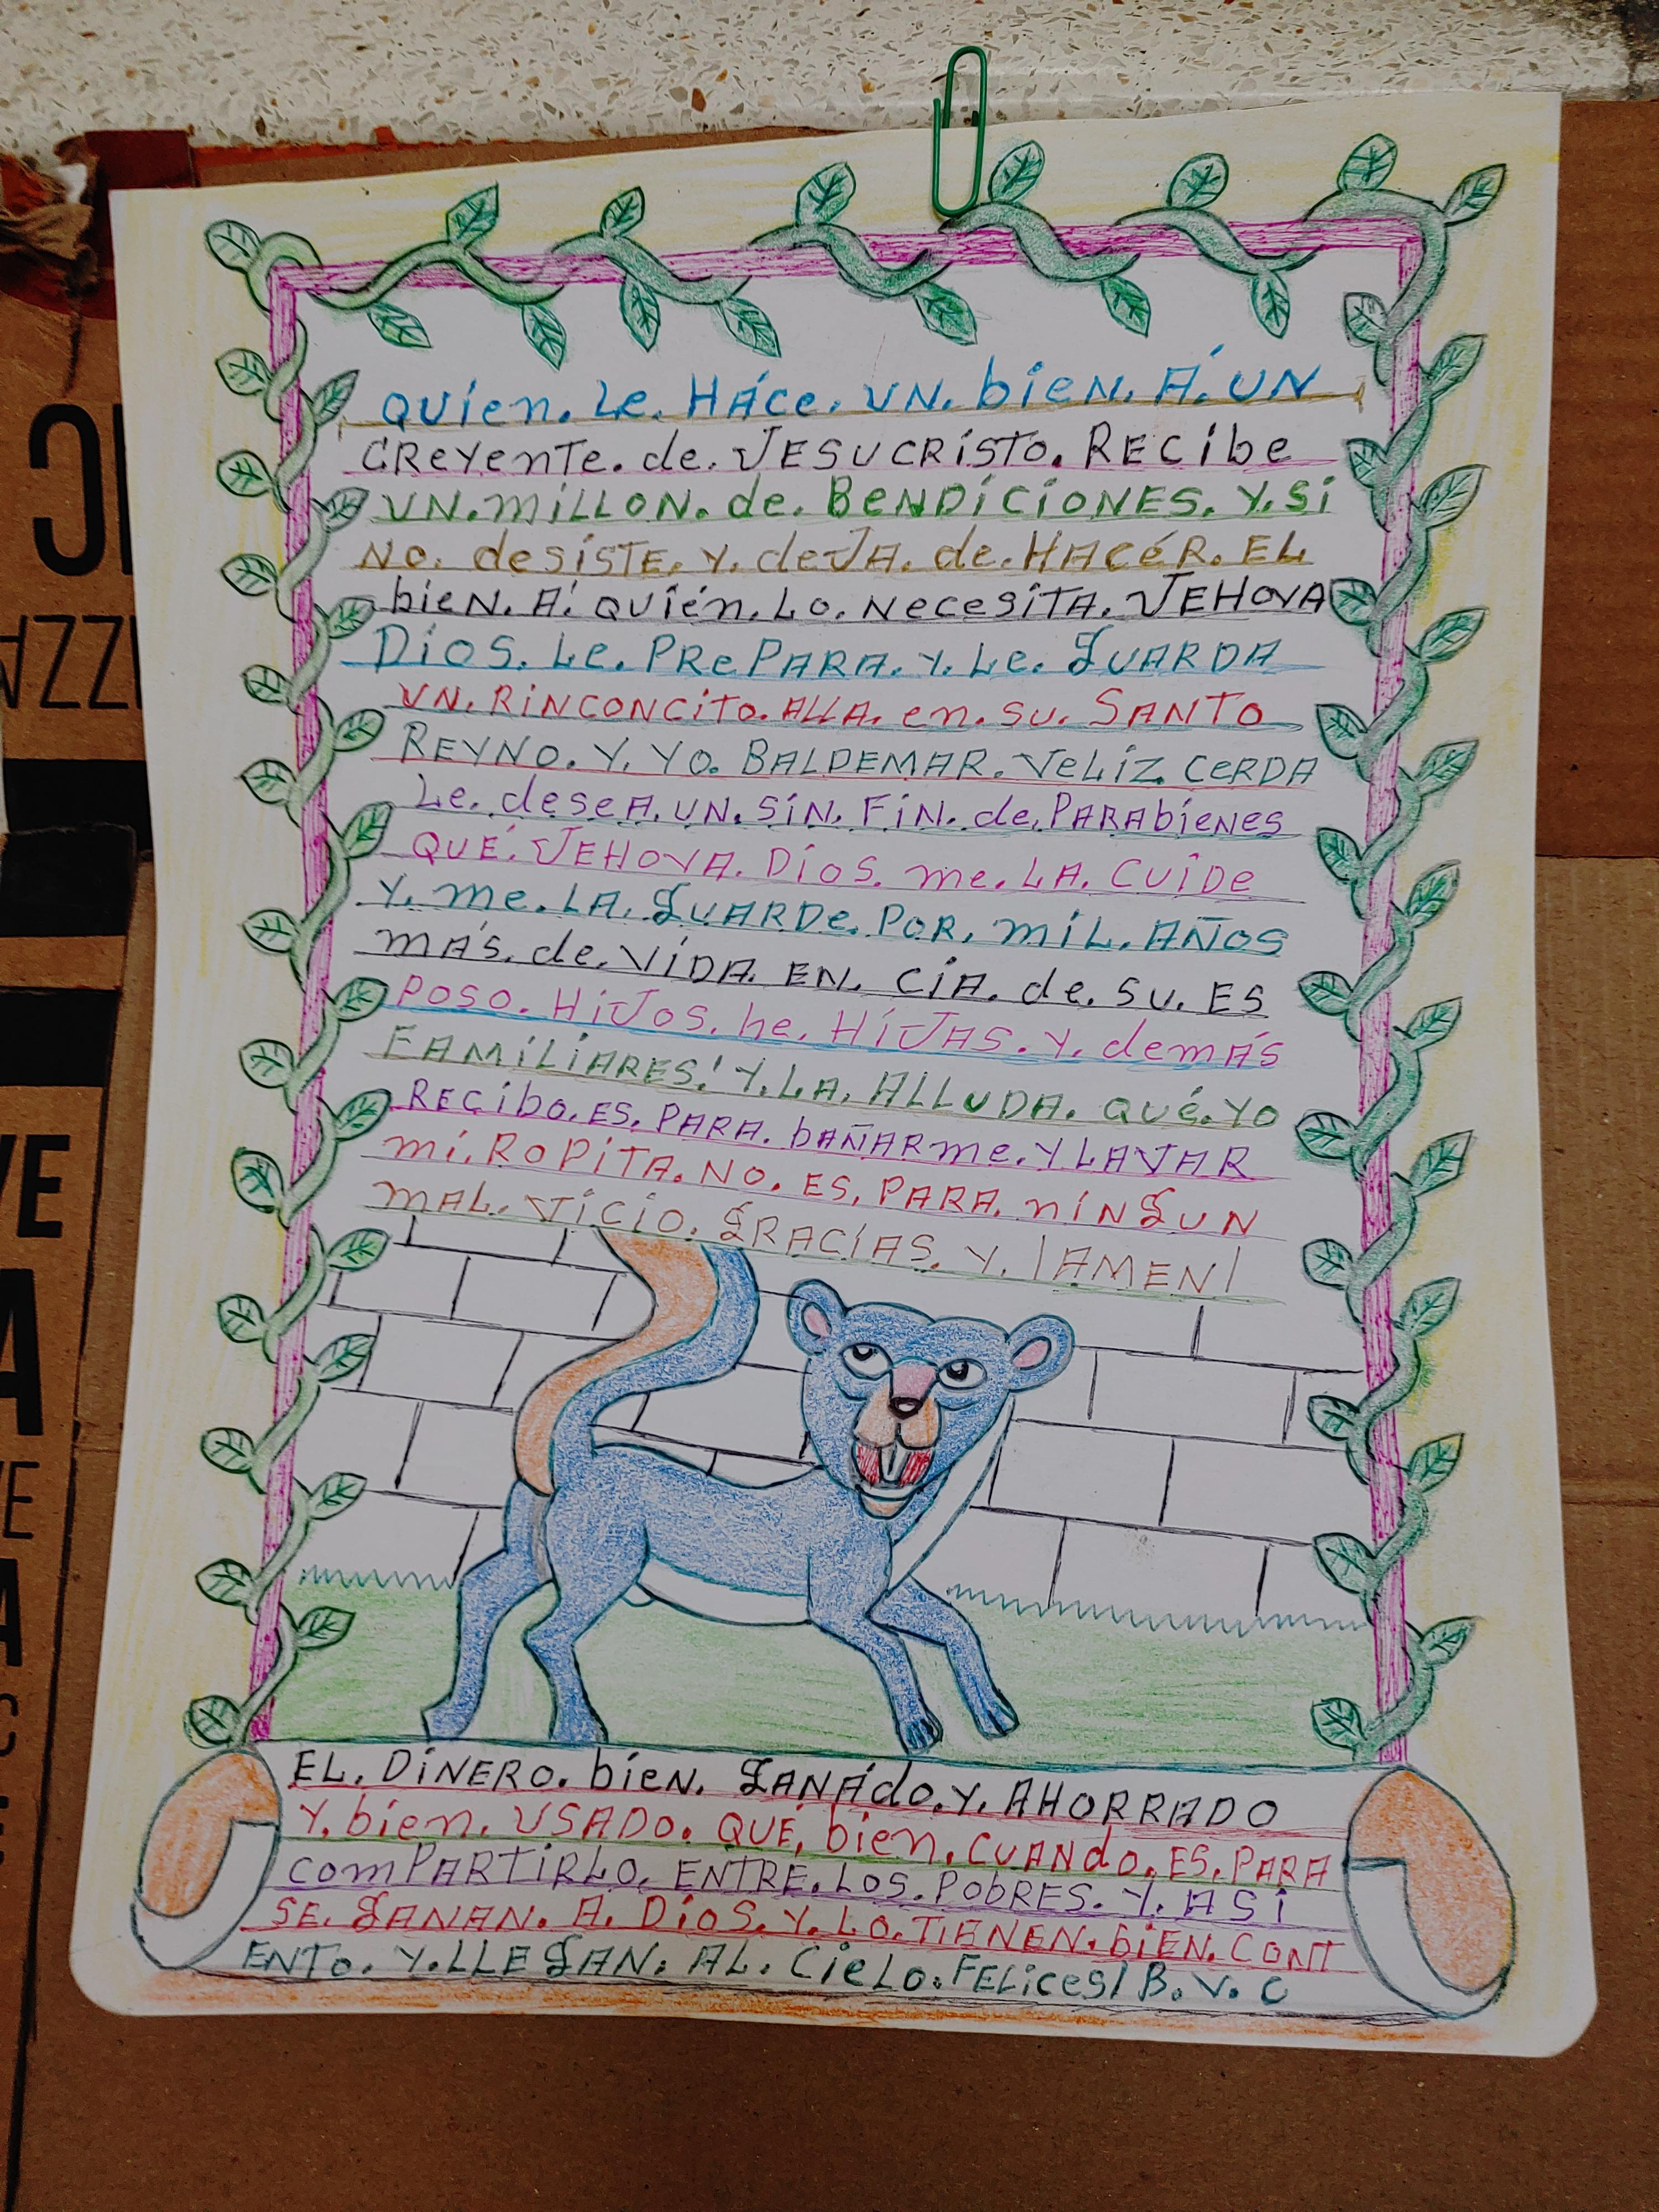 QUien. Le. HÁce. UN. bieN. Á. UN
CReYenTe. de. JESUCRiSTO. RECibe
UN. miLLON. de. BeNDiCiONES. Y. Si
NO. desiSTE. Y. deJA. de. HACéR. EL
bieN. A. QUién. LO. NecesiTA. JEHOVA
DiOS. Le. PRePARA. Y. Le. GUARDA
UN. RiNCONCiTO. ALLA. en. SU. SANTO
REYNO. Y. YO. BALDEMAR. VeLiZ. CeRDA
Le. deseA. UN. SiN. FiN. de. PARAbieNes
QUÉ. JEHOVA. DiOS. me. LA. CUiDe
Y. me. LA. GUARDe. POR. miL. AÑOS
mÁS. de. ViDA. EN. CiA. de. SU. ES
POSO. HiJOS. he. HiJAS. Y. demÁS
FAMiLiARES! Y. LA. ALLUDA. QUé. YO
RECibo. ES. PARA. bAÑARme. Y LAVAR
mi. ROPiTA. NO. ES. PARA. NiNGUN
MAL. ViCiO. GRACiAS. Y. ¡AMEN!
EL. DiNERO. bien. GANÁdo. Y. AHORRADO
Y. bien. USADO. QUÉ. bien. CUANdo. ES. PARA
comPARTiRLO. ENTRE. LOS. PObRES. Y. ASi
SE. GANAN. A. DiOS. Y. LO. TiANEN. biEN. CONT
ENTO. Y. LLEGAN. AL. CieLO. FELices! B. V. C
VE
A